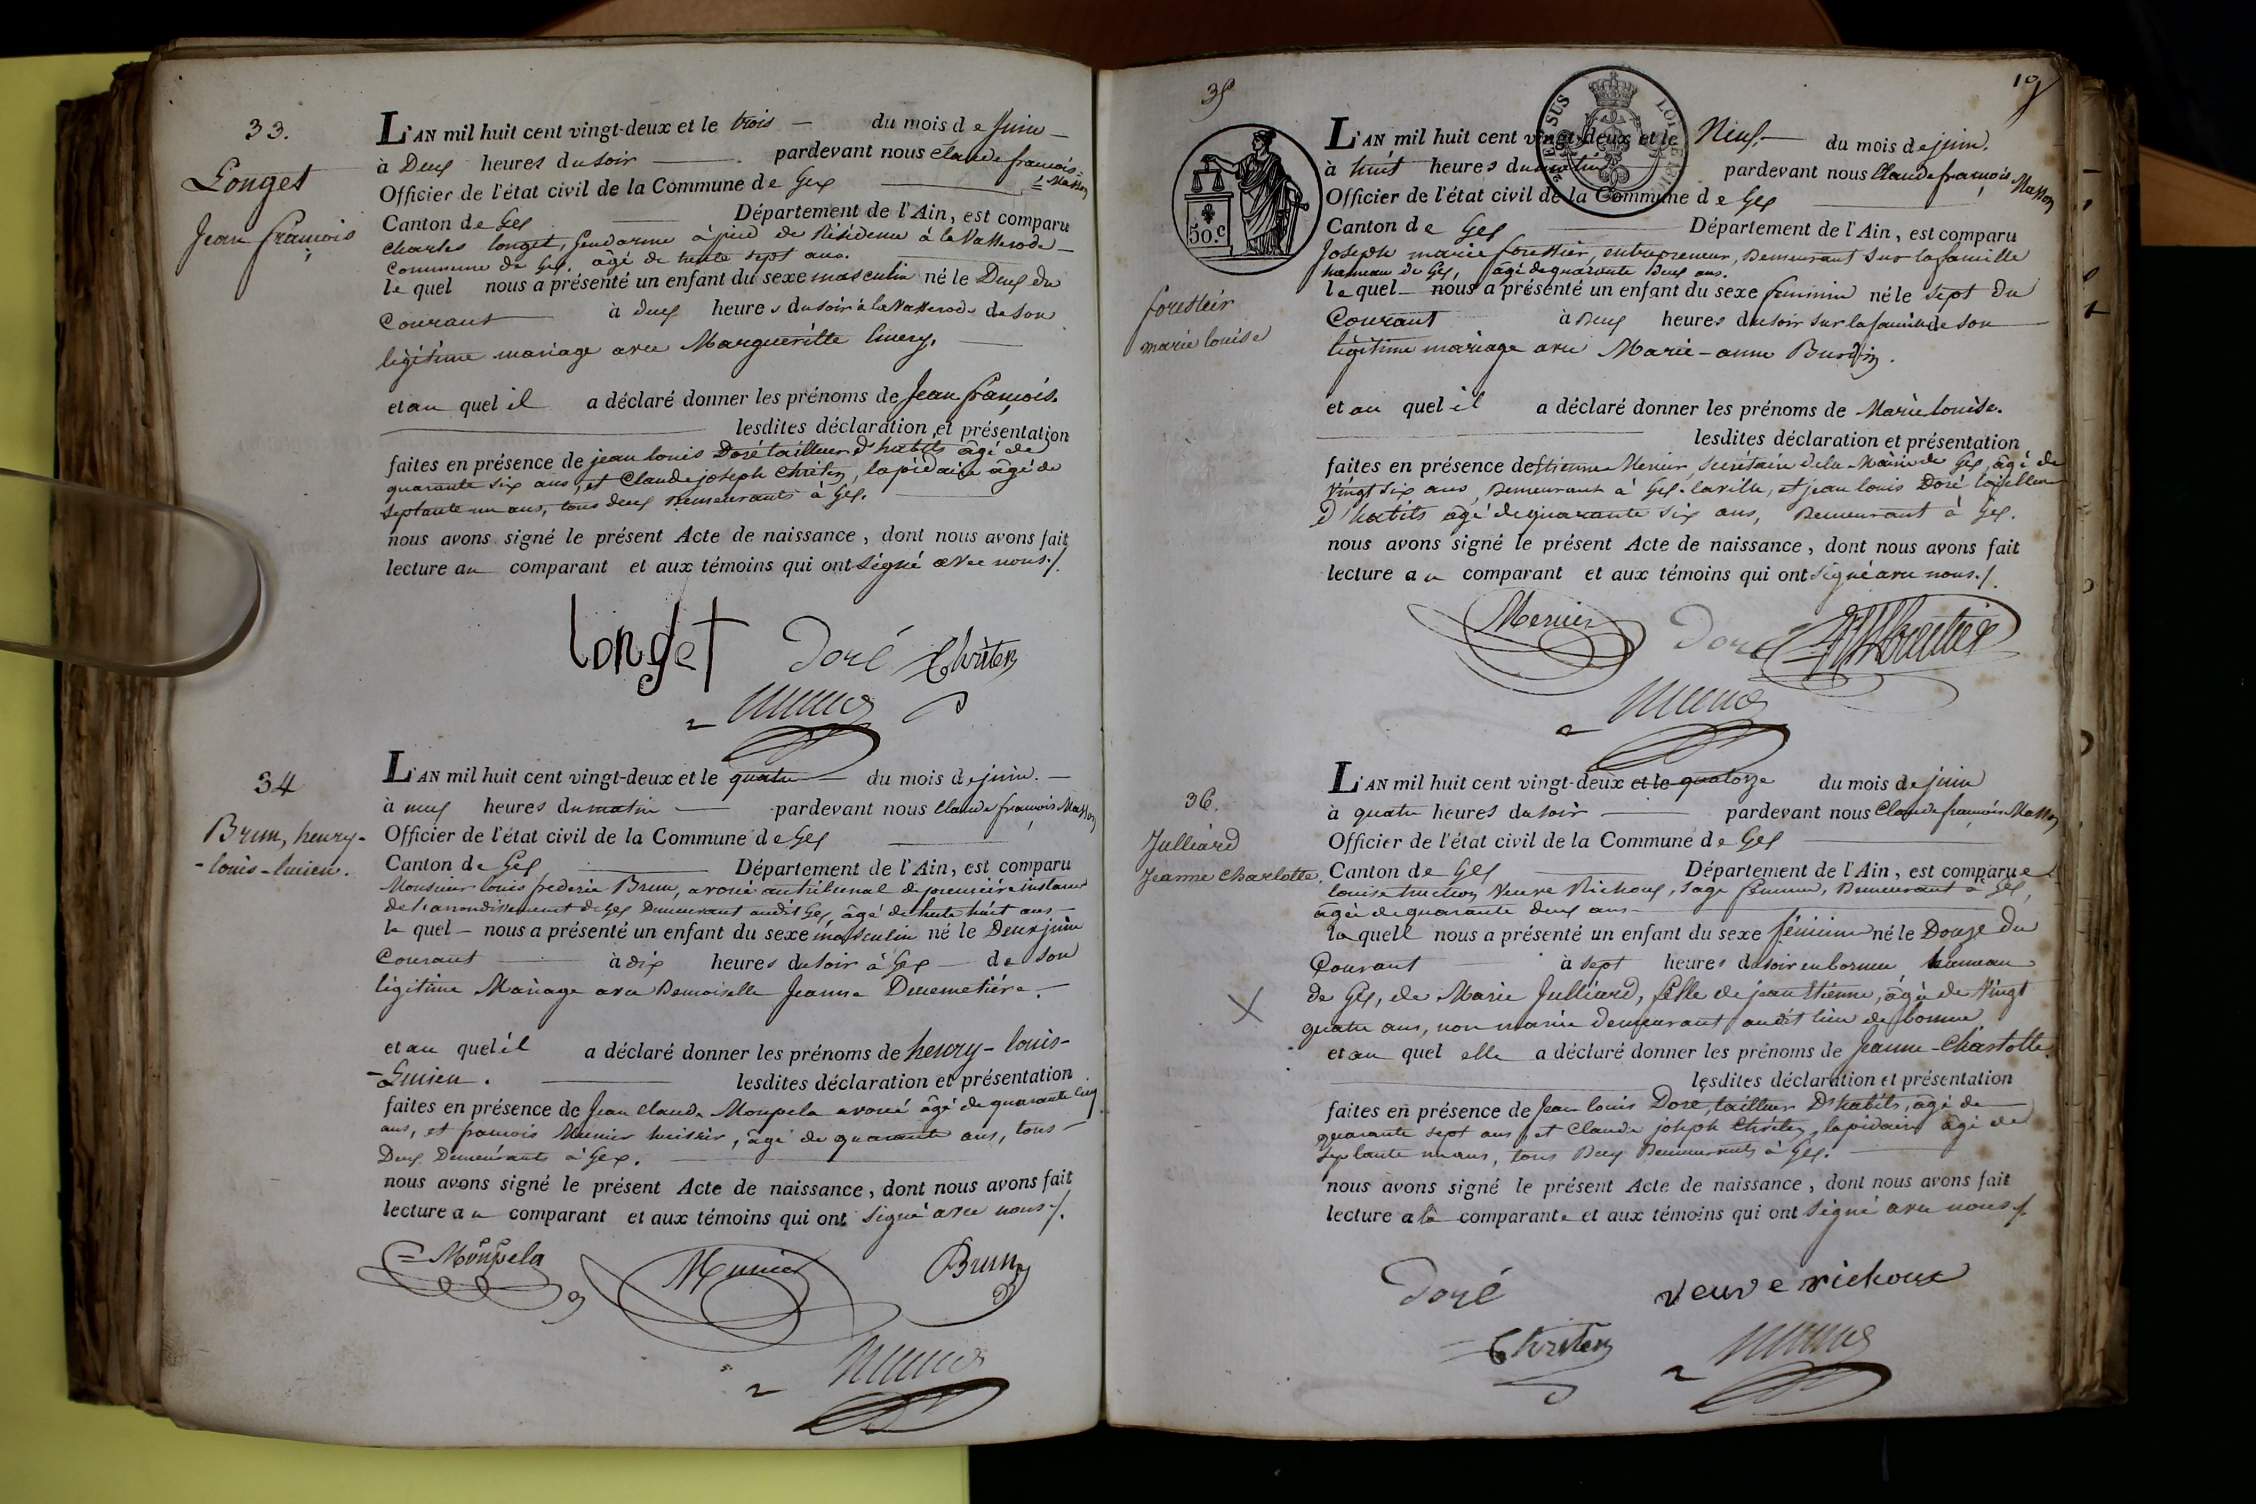 33.
Longet
Jean françois
L'AN mil huit cent vingt-deux et le trois du mois de Juin
à Deux heures du soir pardevant nous Claude françois Masson
Officier de l'état civil de la Commune de Gex
Canton de Gex Département de l'Ain, est comparu
Charles Longet, Gendarme à pied de Résidence à la Vasserode
Commune de Gex, âgé de trente sept ans.
le quel nous a présenté un enfant du sexe masculin né le Deux du
Courant à deux heures du soir à la Vasserode de son
légitime mariage avec Marguerite
et au quel il a déclaré donner les prénoms de Jean françois.
lesdites déclaration et présentation
faites en présence de jean louis Doré tailleur d'habits âgé de
quarante six ans, et Claude joseph Chrêten, lapidaire âgé de
septante un ans, tous deux Demeurants à Gex.
nous avons signé le présent Acte de naissance, dont nous avons fait
lecture au comparant et aux témoins qui ont signé avec nous./.
Longet Doré Chrêten
34
Brun, henry-
-louis-lucien.
L'AN mil huit cent vingt-deux et le quatre du mois de juin.
à neuf heures du matin pardevant nous Claude françois Masson
Officier de l'état civil de la Commune de Gex
Canton de Gex Département de l'Ain, est comparu
Monsieur louis frederic Brun, avoué au tribunal de première instance
de l'arrondissement de Gex Demeurant audit Gex, âgé de trente huit ans
le quel nous a présenté un enfant du sexe masculin né le Deux juin
Courant à dix heures du soir à Gex de son
légitime Mariage avec Demoiselle Jeanne
et au quel il a déclaré donner les prénoms de henry-louis-
-Lucien. lesdites déclaration et présentation
faites en présence de Jean Claude Monpela avoué âgé de quarante cinq
ans, et françois Munier huissier, âgé de quarante ans, tous
Deux Demeurants à Gex.
nous avons signé le présent Acte de naissance, dont nous avons fait
lecture au comparant et aux témoins qui ont signé avec nous./.
Monpela Munier Brun
35
19
50.c
forestier
marie louise
L'AN mil huit cent vingt-deux et le Neuf du mois de juin.
à huit heures du matin pardevant nous Claude françois Masson
Officier de l'état civil de la Commune de Gex
Canton de Gex Département de l'Ain, est comparu
Joseph marie forestier, entrepreneur, Demeurant sur la famille
hameau de Gex, âgé de quarante Deux ans.
le quel nous a présenté un enfant du sexe feminin né le sept du
Courant à Deux heures du soir sur la famille de son
légitime mariage avec Marie-anne Burdin.
et au quel il a déclaré donner les prénoms de Marie louise.
lesdites déclaration et présentation
faites en présence de Etienne Mercier, secrétaire de la Mairie de Gex, âgé de
Vingt six ans, Demeurant à Gex-la ville, et jean louis Doré tailleur
D'habits âgé de quarante six ans, Demeurant à Gex.
nous avons signé le présent Acte de naissance, dont nous avons fait
lecture au comparant et aux témoins qui ont signé avec nous./.
Mercier Doré
36.
Julliard
Jeanne Charlotte.
L'AN mil huit cent vingt-deux et le quatorze du mois de juin
à quatre heures du soir pardevant nous Claude françois Masson
Officier de l'état civil de la Commune de Gex
Canton de Gex Département de l'Ain, est comparue
louise Veuve Richoux, sage femme, Demeurant à Gex,
âgée de quarante deux ans
la quell nous a présenté un enfant du sexe féminin né le Douze du
Courant à sept heures du soir en hameau
de Gex, de Marie Julliard, fille de jean Etienne, âgée de Vingt
quatre ans, non mariée demeurant audit lieu de
et au quel elle a déclaré donner les prénoms de Jeanne-Charlotte.
lesdites déclaration et présentation
faites en présence de Jean louis Doré, tailleur D'habits, âgé de
quarante sept ans, et Claude joseph Chrêten, lapidaire âgé de
septante un ans, tous Deux Demeurants à Gex.
nous avons signé le présent Acte de naissance, dont nous avons fait
lecture a la comparante et aux témoins qui ont signé avec nous./.
Doré veuve richoux
Chrêten